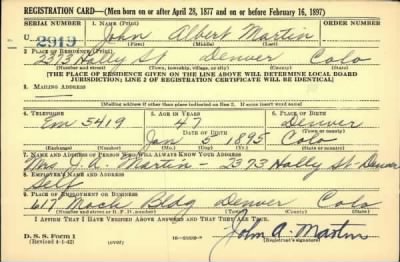 REGISTRATION CARD—(Men born on or after April 28, 1877 and on or before February 16, 1897)
SERIAL NUMBER 1. NAME (Print) ORDER NUMBER
U 2919 John Albert Martin
(First) (Middle) (Last)
2. PLACE OF RESIDENCE (Print)
2373 Holly St Denver Colo
(Number and street) (Town, township, village, or city) (County) (State)
[THE PLACE OF RESIDENCE GIVEN ON THE LINE ABOVE WILL DETERMINE LOCAL BOARD
JURISDICTION; LINE 2 OF REGISTRATION CERTIFICATE WILL BE IDENTICAL]
3. MAILING ADDRESS
[Mailing address if other than place indicated on line 2. If same insert word same]
4. TELEPHONE 5. AGE IN YEARS 6. PLACE OF BIRTH
Em 5419 47 Denver
DATE OF BIRTH (Town or county)
Jan 5 1895 Colo
(Exchange) (Number) (Mo.) (Day) (Yr.) (State or country)
7. NAME AND ADDRESS OF PERSON WHO WILL ALWAYS KNOW YOUR ADDRESS
Mrs J. A. Martin - 2373 Holly St - Denver
8. EMPLOYER'S NAME AND ADDRESS
Self
9. PLACE OF EMPLOYMENT OR BUSINESS
617 Mack Bldg Denver Colo
(Number and street or R. F. D. number) (Town) (County) (State)
I AFFIRM THAT I HAVE VERIFIED ABOVE ANSWERS AND THAT THEY ARE TRUE.
D. S. S. Form 1
(Revised 4-1-42) (over) John A. Martin
(Registrant's signature)